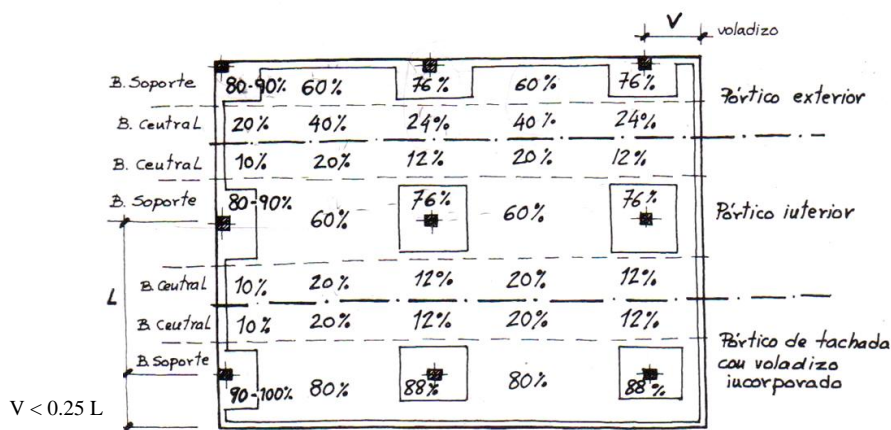 V
voladizo
B. Soporte 80-90% 60% 76% 60% 76% Pórtico exterior
B. Central 20% 40% 24% 40% 24%
B. Central 10% 20% 12% 20% 12%
B. Soporte 80-90% 60% 76% 60% 76% Pórtico interior
L
B. Central 10% 20% 12% 20% 12%
B. Central 10% 20% 12% 20% 12%
B. Soporte 90-100% 80% 88% 80% 88% Pórtico de fachada
con voladizo
incorporado
V < 0.25 L